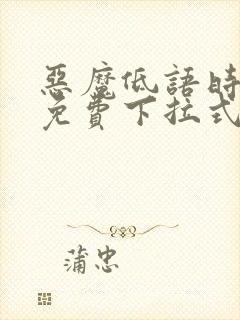 惡魔低語時
免費下拉式
蒲忠